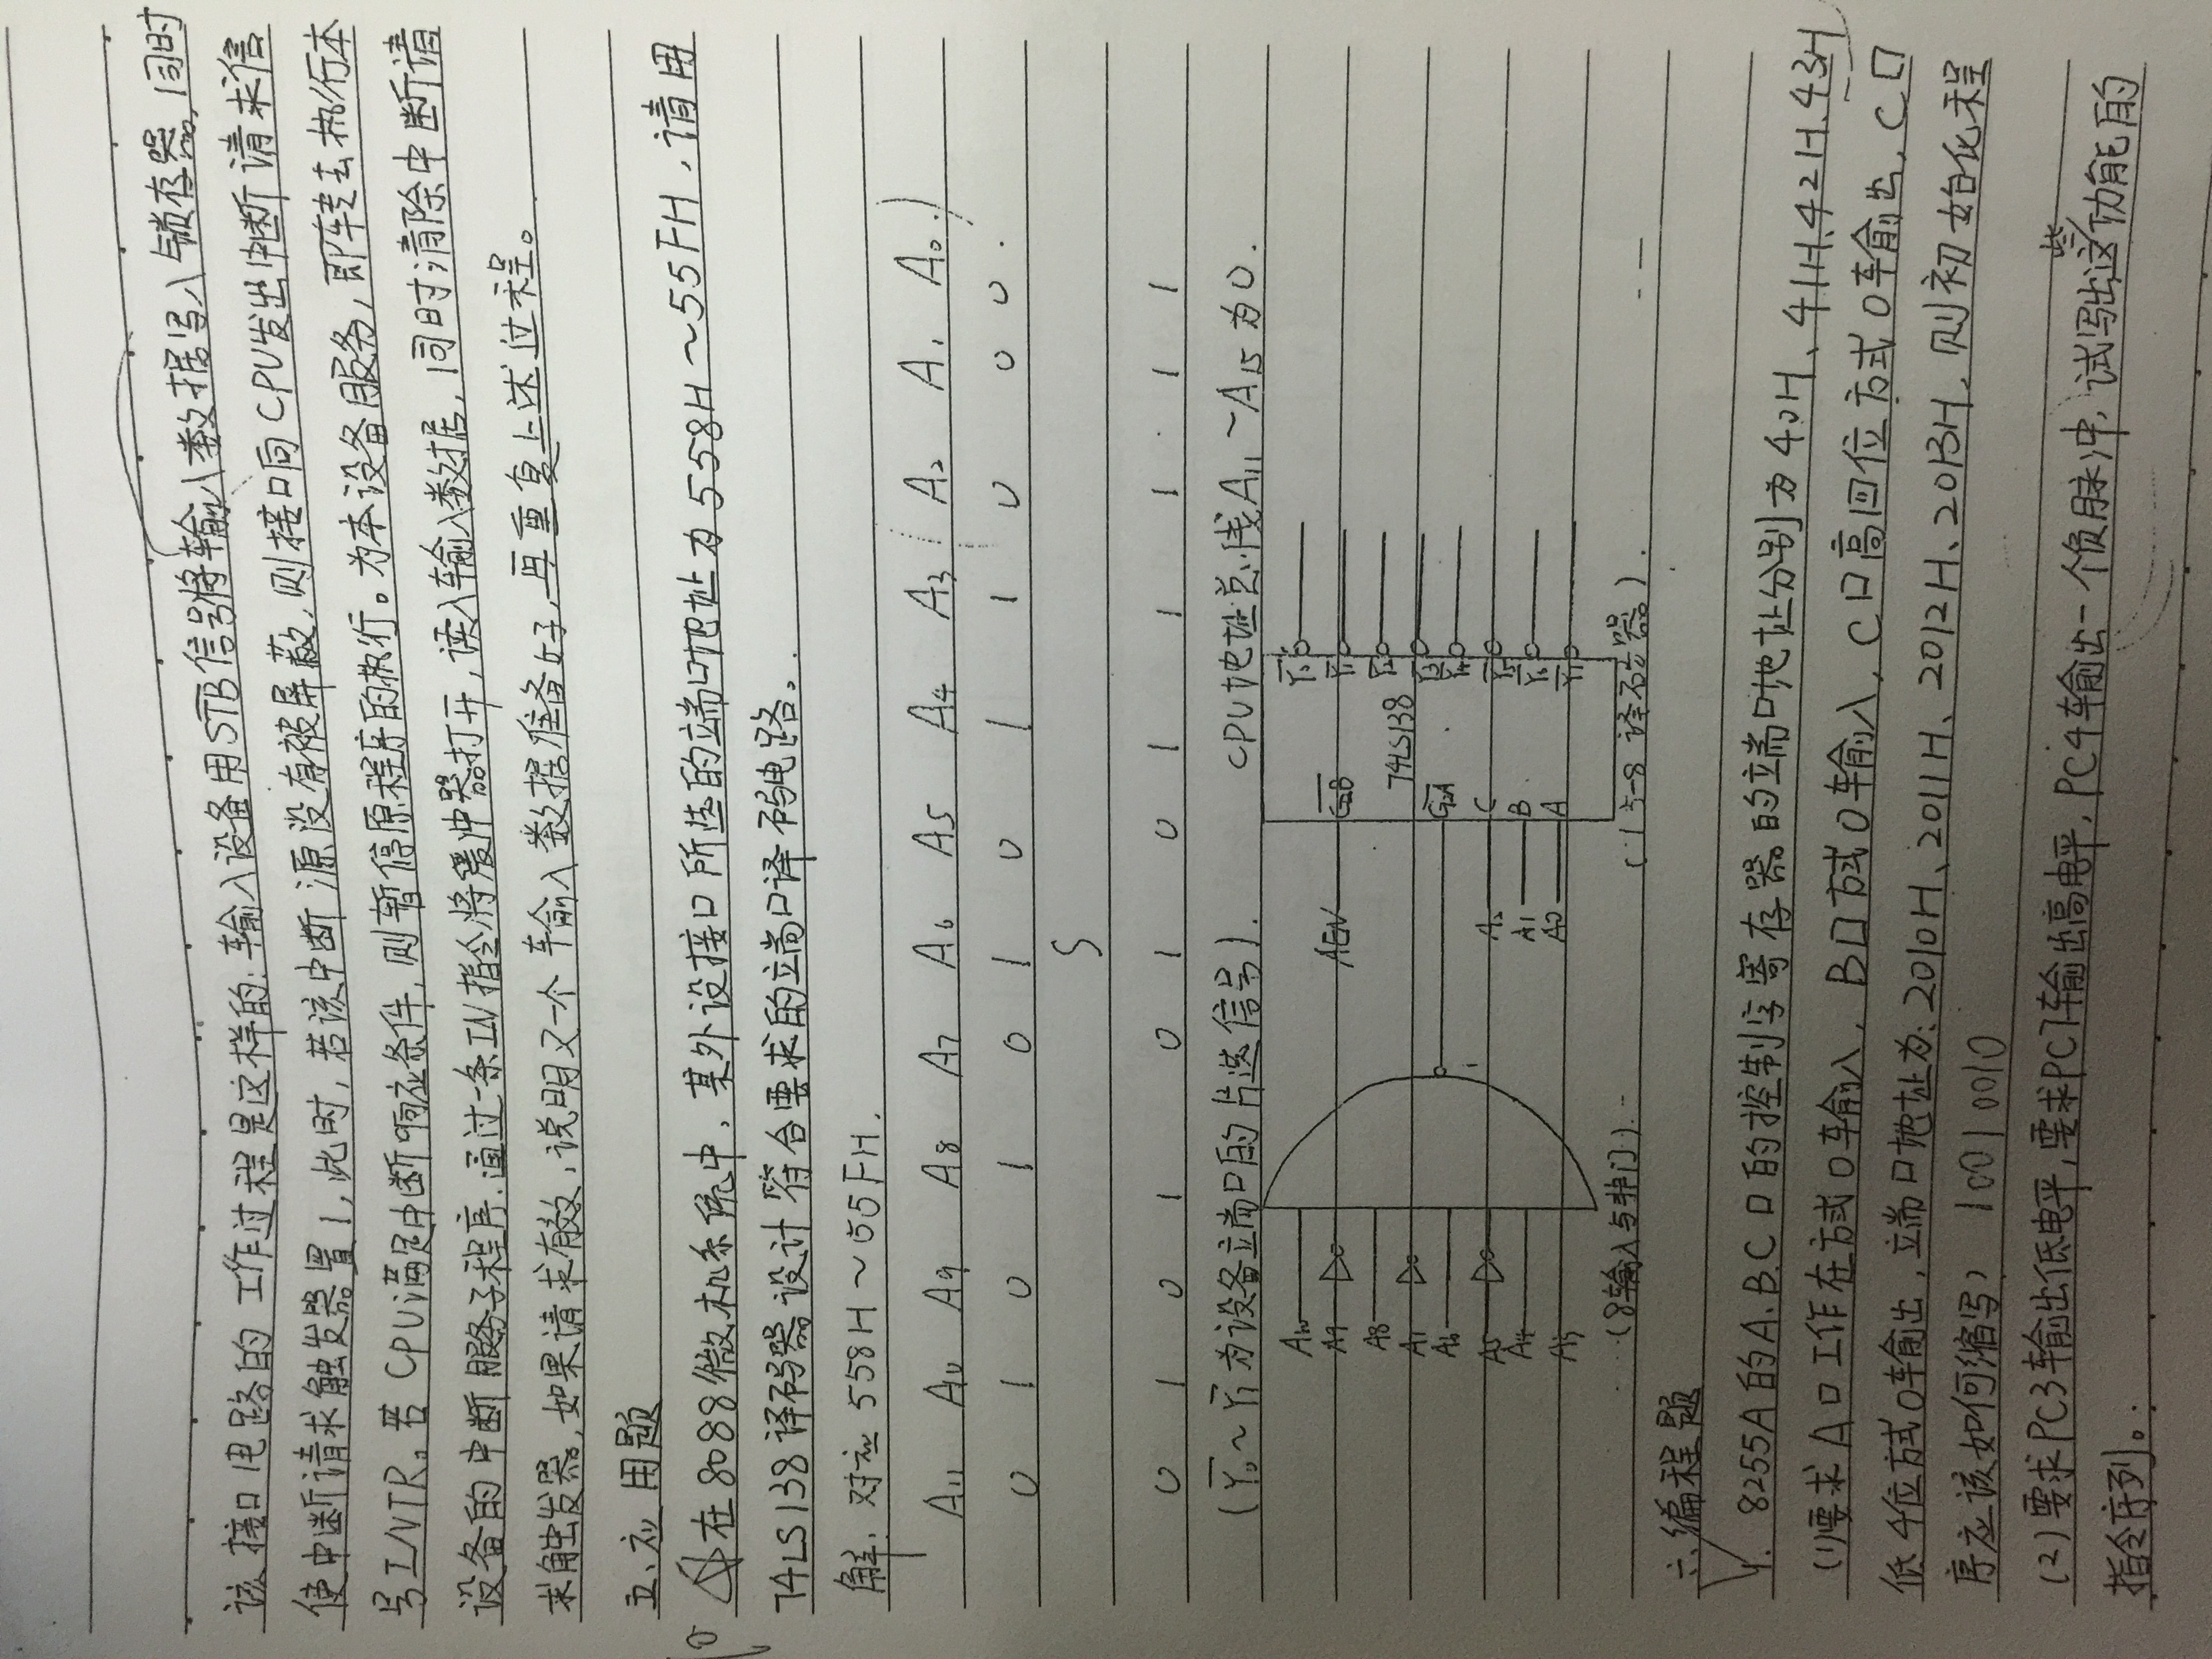 该接口电路的工作过程是这样的:输入设备用STB信号将输入数据写入锁存器,同时
使中断请求触发器置1,此时,若该中断源没有被屏蔽,则接口向CPU发出中断请求信
号INTR。若CPU满足中断响应条件,则暂停原程序的执行。为本设备服务,即转去执行本
设备的中断服务子程序.通过一条IN指令将缓冲器打开,读入输入数据,同时清除中断请
求触发器,如果请求有效,说明又一个输入数据准备好,再重复上述过程。
五、应用题
在8088微机系统中,某外设接口所选的端口地址为558H~55FH,请用
74LS138译码器设计符合要求的端口译码电路。
解:对应558H~55FH.
A11 A10 A9 A8 A7 A6 A5 A4 A3 A2 A1 A0
0 1 0 1 0 1 0 1 1 0 0 0
S
0 1 0 1 0 1 0 1 1 1 1 1
(Y0~Y7为设备端口的片选信号). CPU地址总线A11~A15为0.
A10
A9
A8
A7
A6
A5
A4
A3
AEN
G2B
74LS138
G2A
A2 C
A1 B
A0 A
Y0
Y1
Y2
Y3
Y4
Y5
Y6
Y7
(8输入与非门)
(3-8译码器).
六、编程题
1. 8255A的A.B.C口的控制字寄存器的端口地址分别为40H、41H、42H、43H
(1)要求A口工作在方式0输入,B口方式0输入,C口高四位方式0输出,C口
低4位方式0输出,端口地址为:2010H、2011H、2012H、2013H,则初始化程
序应该如何缩写? 10010010
(2)要求PC3输出低电平,要求PC7输出高电平,PC4输出一个负脉冲,试写出这些功能的
指令序列。